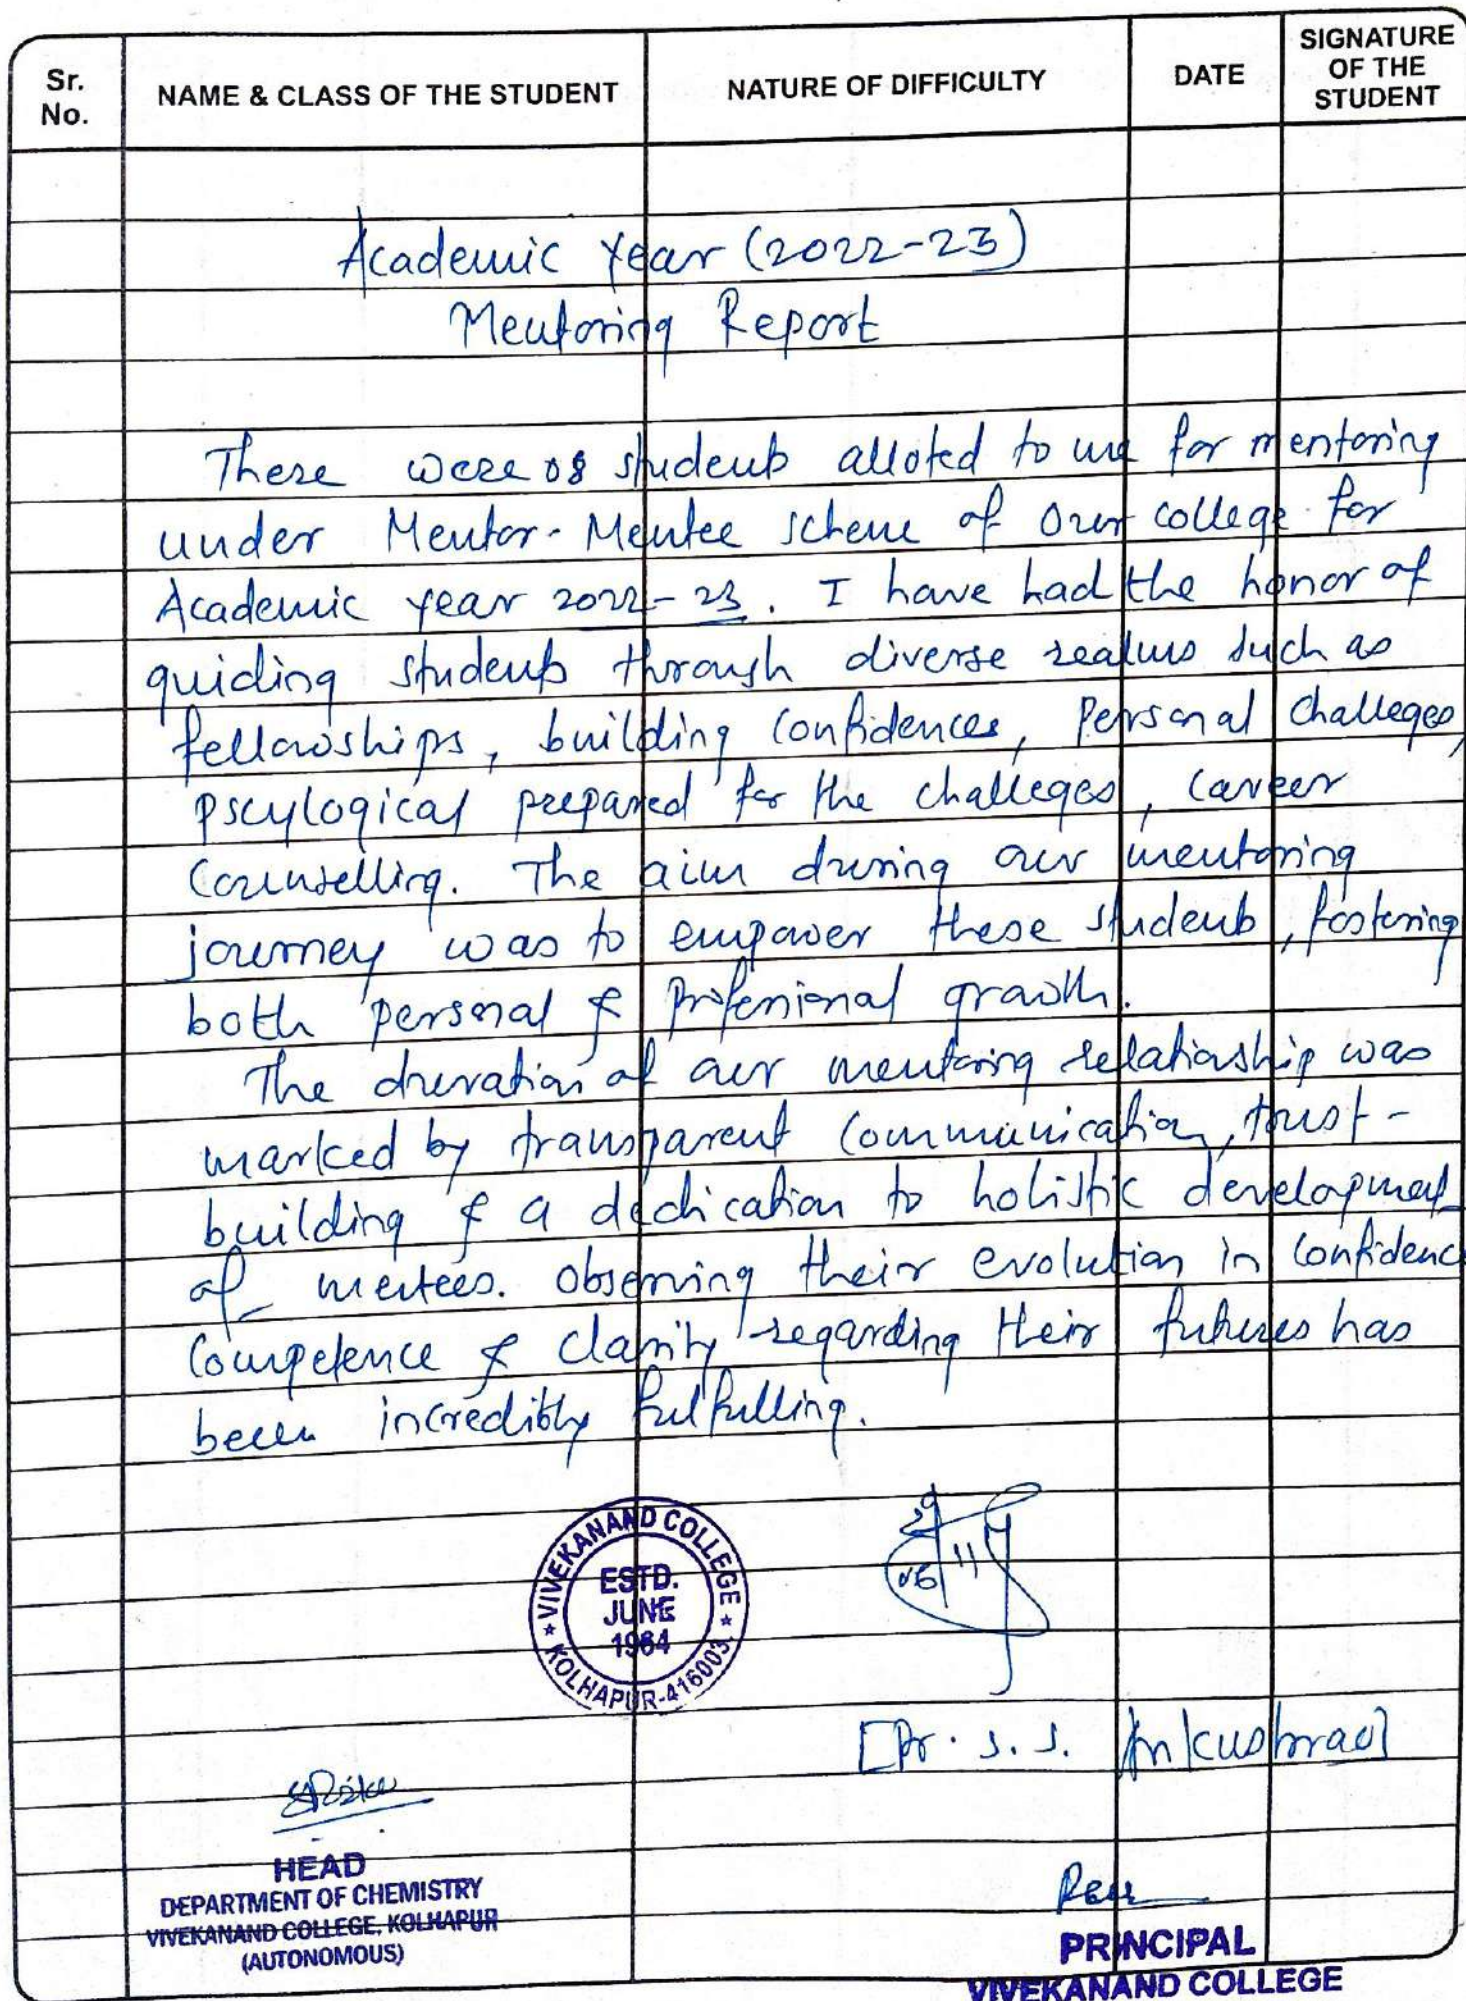 Sr. No.
NAME & CLASS OF THE STUDENT
NATURE OF DIFFICULTY
DATE
SIGNATURE OF THE STUDENT
Academic Year (2022-23)
Mentoring Report
There were 08 students alloted to me for mentoring
under Mentor-Mentee scheme of Our college for
Academic year 2022-23. I have had the honor of
guiding students through diverse realms such as
fellowships, building confidences, Personal challeges,
pscylogical prepared for the challeges, career
Counselling. The aim during our mentoring
journey was to empower these students, fostering
both personal & professional growth.
The duration of our mentoring relationship was
marked by transparent communication, trust-
building & a dedication to holistic development
of mentees. Observing their evolution in confidenc
competence & clarity regarding their futures has
been incredibly fulfilling.
VIVEKANAND COLLEGE
ESTD.
JUNE
1964
KOLHAPUR-416003
[Dr. S. S. Ankushrao]
HEAD
DEPARTMENT OF CHEMISTRY
VIVEKANAND COLLEGE, KOLHAPUR
(AUTONOMOUS)
PRINCIPAL
VIVEKANAND COLLEGE